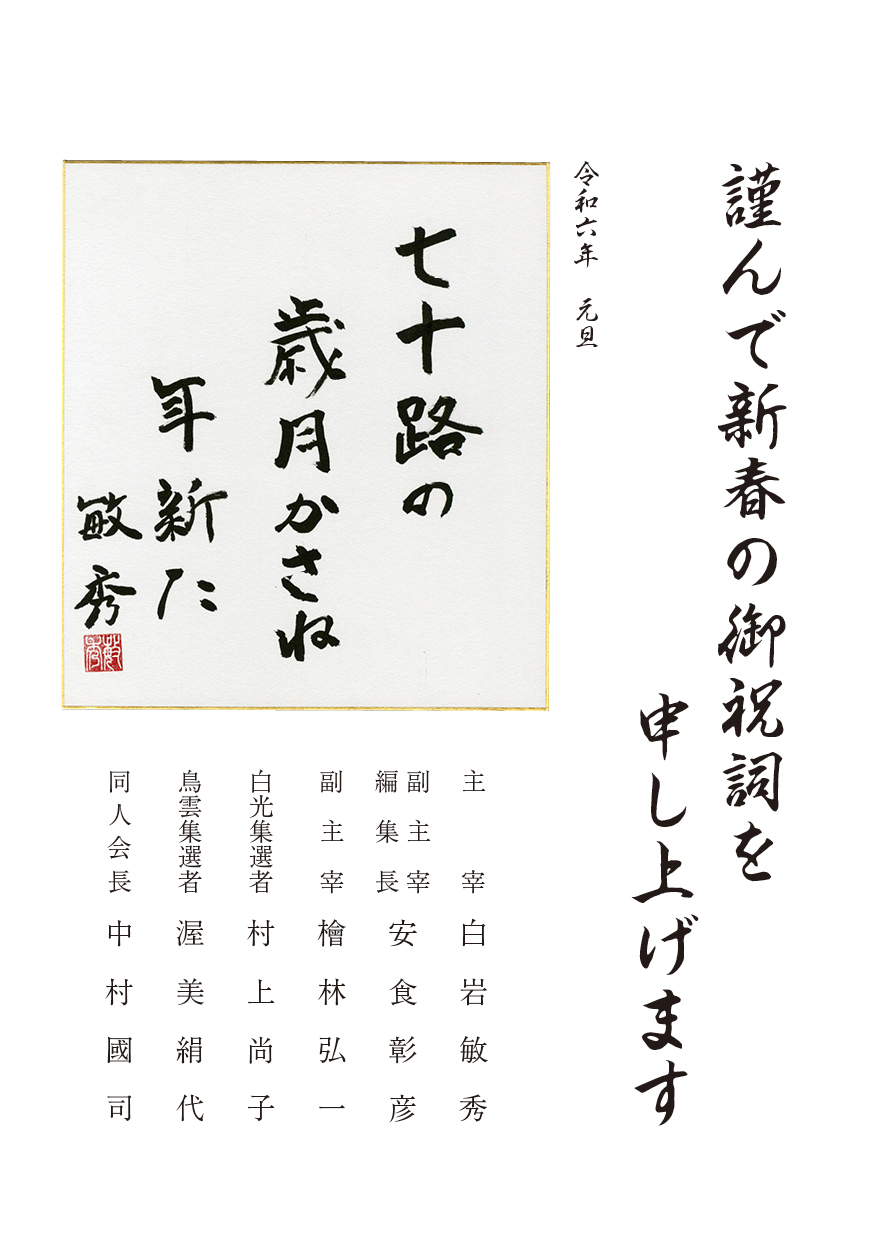 謹んで新春の御祝詞を
申し上げます
令和六年 元旦
七十路の
歳月かさね
年新た
敏秀
敏秀
主宰 白岩敏秀
副主宰
編集長 安食彰彦
副主宰 檜林弘一
白光集選者 村上尚子
鳥雲集選者 渥美絹代
同人会長 中村國司